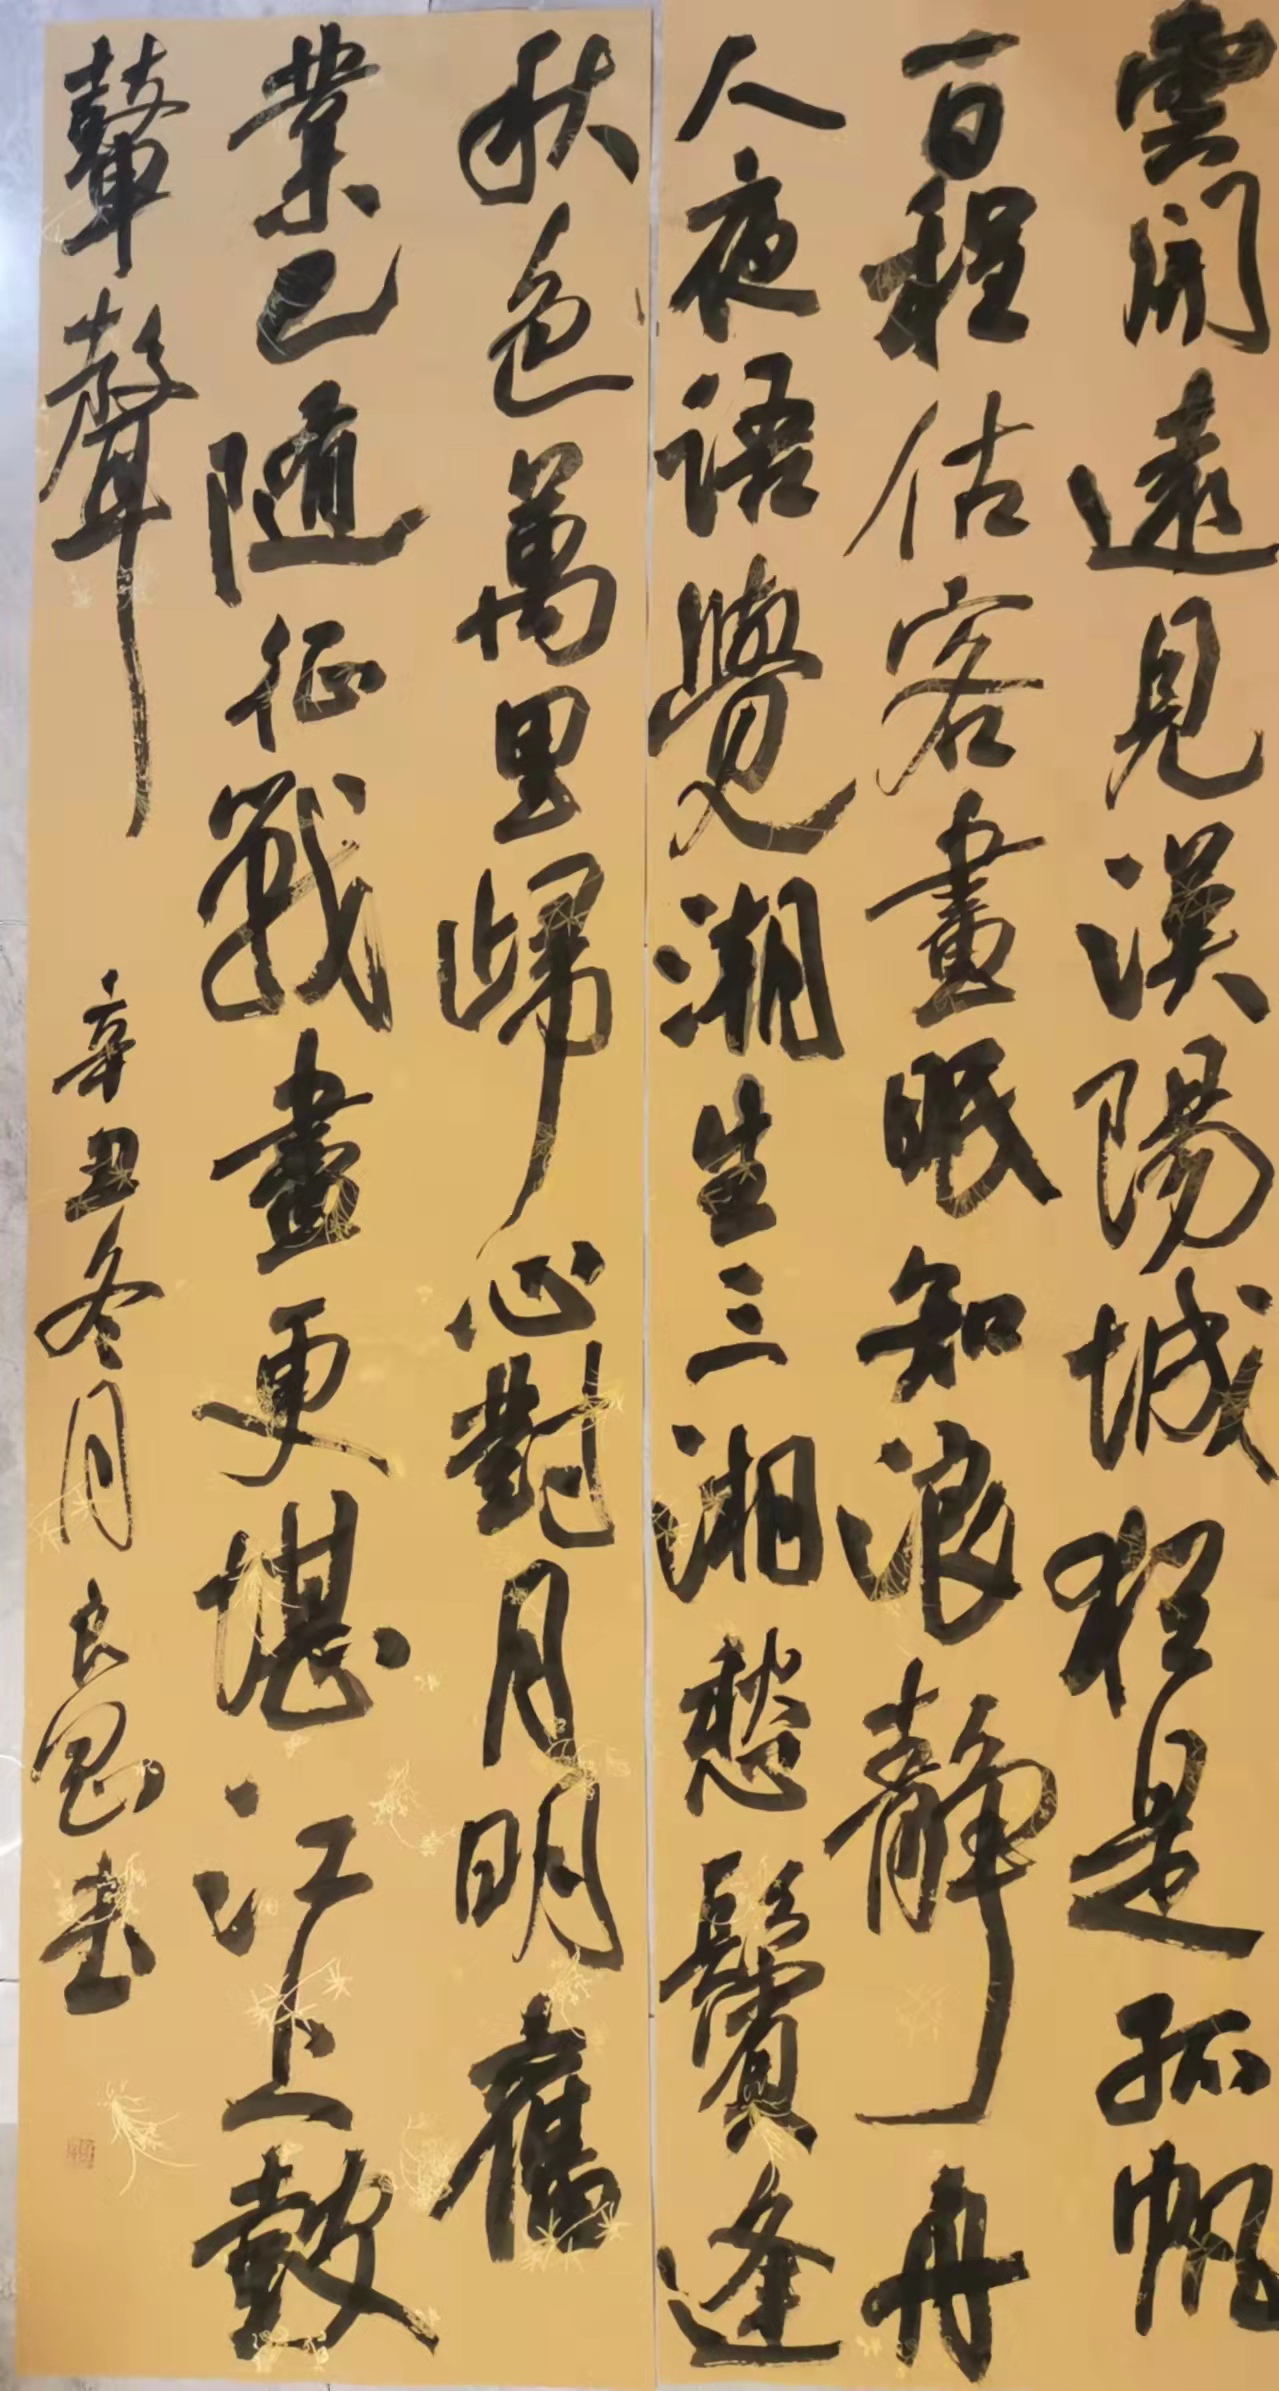 雲開遠見漢陽城程是孤帆
百程估客晝眠知浪靜舟
人夜語覺潮生三湘愁鬢逢
秋色萬里歸心對月明舊
業已隨征戰晝更堪江上鼓
鼙聲
辛丑冬月良 書